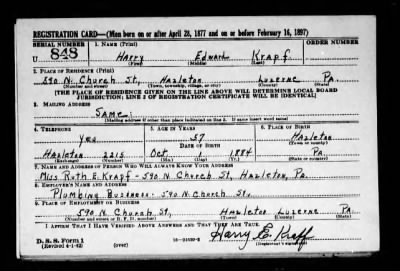 REGISTRATION CARD—(Men born on or after April 28, 1877 and on or before February 16, 1897)
SERIAL NUMBER 1. NAME (Print) ORDER NUMBER
U 848 Harry Edward Krapf
(First) (Middle) (Last)
2. PLACE OF RESIDENCE (Print)
590 N. Church St, Hazleton Luzerne Pa.
(Number and street) (Town, township, village, or city) (County) (State)
(THE PLACE OF RESIDENCE GIVEN ON THE LINE ABOVE WILL DETERMINE LOCAL BOARD
JURISDICTION; LINE 2 OF REGISTRATION CERTIFICATE WILL BE IDENTICAL)
3. MAILING ADDRESS
Same.
(Mailing address if other than place indicated on line 2. If same insert word same)
4. TELEPHONE 5. AGE IN YEARS 6. PLACE OF BIRTH
Yes 57 Hazleton
DATE OF BIRTH (Town or county)
Hazleton 2215 Oct 1 1884 Pa.
(Exchange) (Number) (Mo.) (Day) (Yr.) (State or country)
7. NAME AND ADDRESS OF PERSON WHO WILL ALWAYS KNOW YOUR ADDRESS
Miss Ruth E. Krapf - 590 N. Church St, Hazleton, Pa.
8. EMPLOYER'S NAME AND ADDRESS
Plumbing Business - 590 N. Church St,
9. PLACE OF EMPLOYMENT OR BUSINESS
590 N. Church St, Hazleton Luzerne Pa.
(Number and street or R. F. D. number) (Town) (County) (State)
I AFFIRM THAT I HAVE VERIFIED ABOVE ANSWERS AND THAT THEY ARE TRUE.
D. S. S. Form 1 Harry E. Krapf
(Revised 4-1-42) (over) (Registrant's signature)